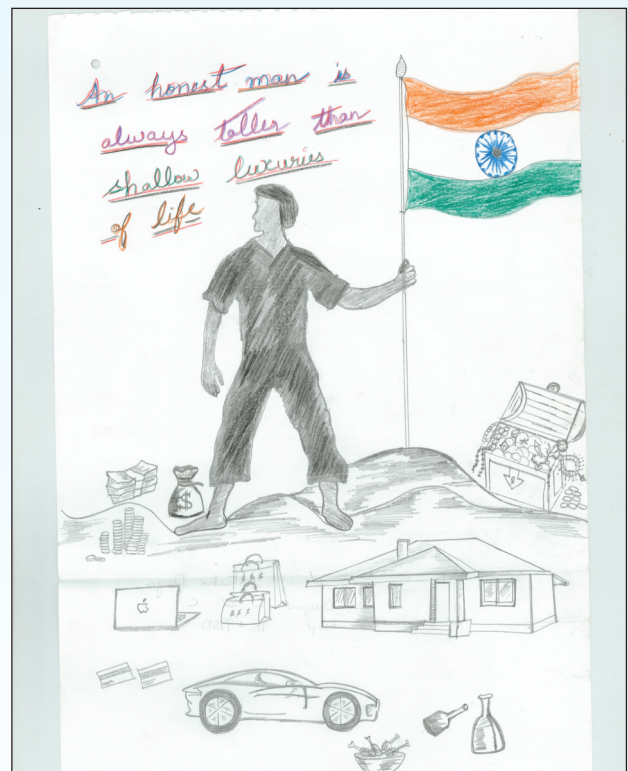 An honest man is
always taller than
shallow luxuries
of life
$
$ $ $
$ $ $